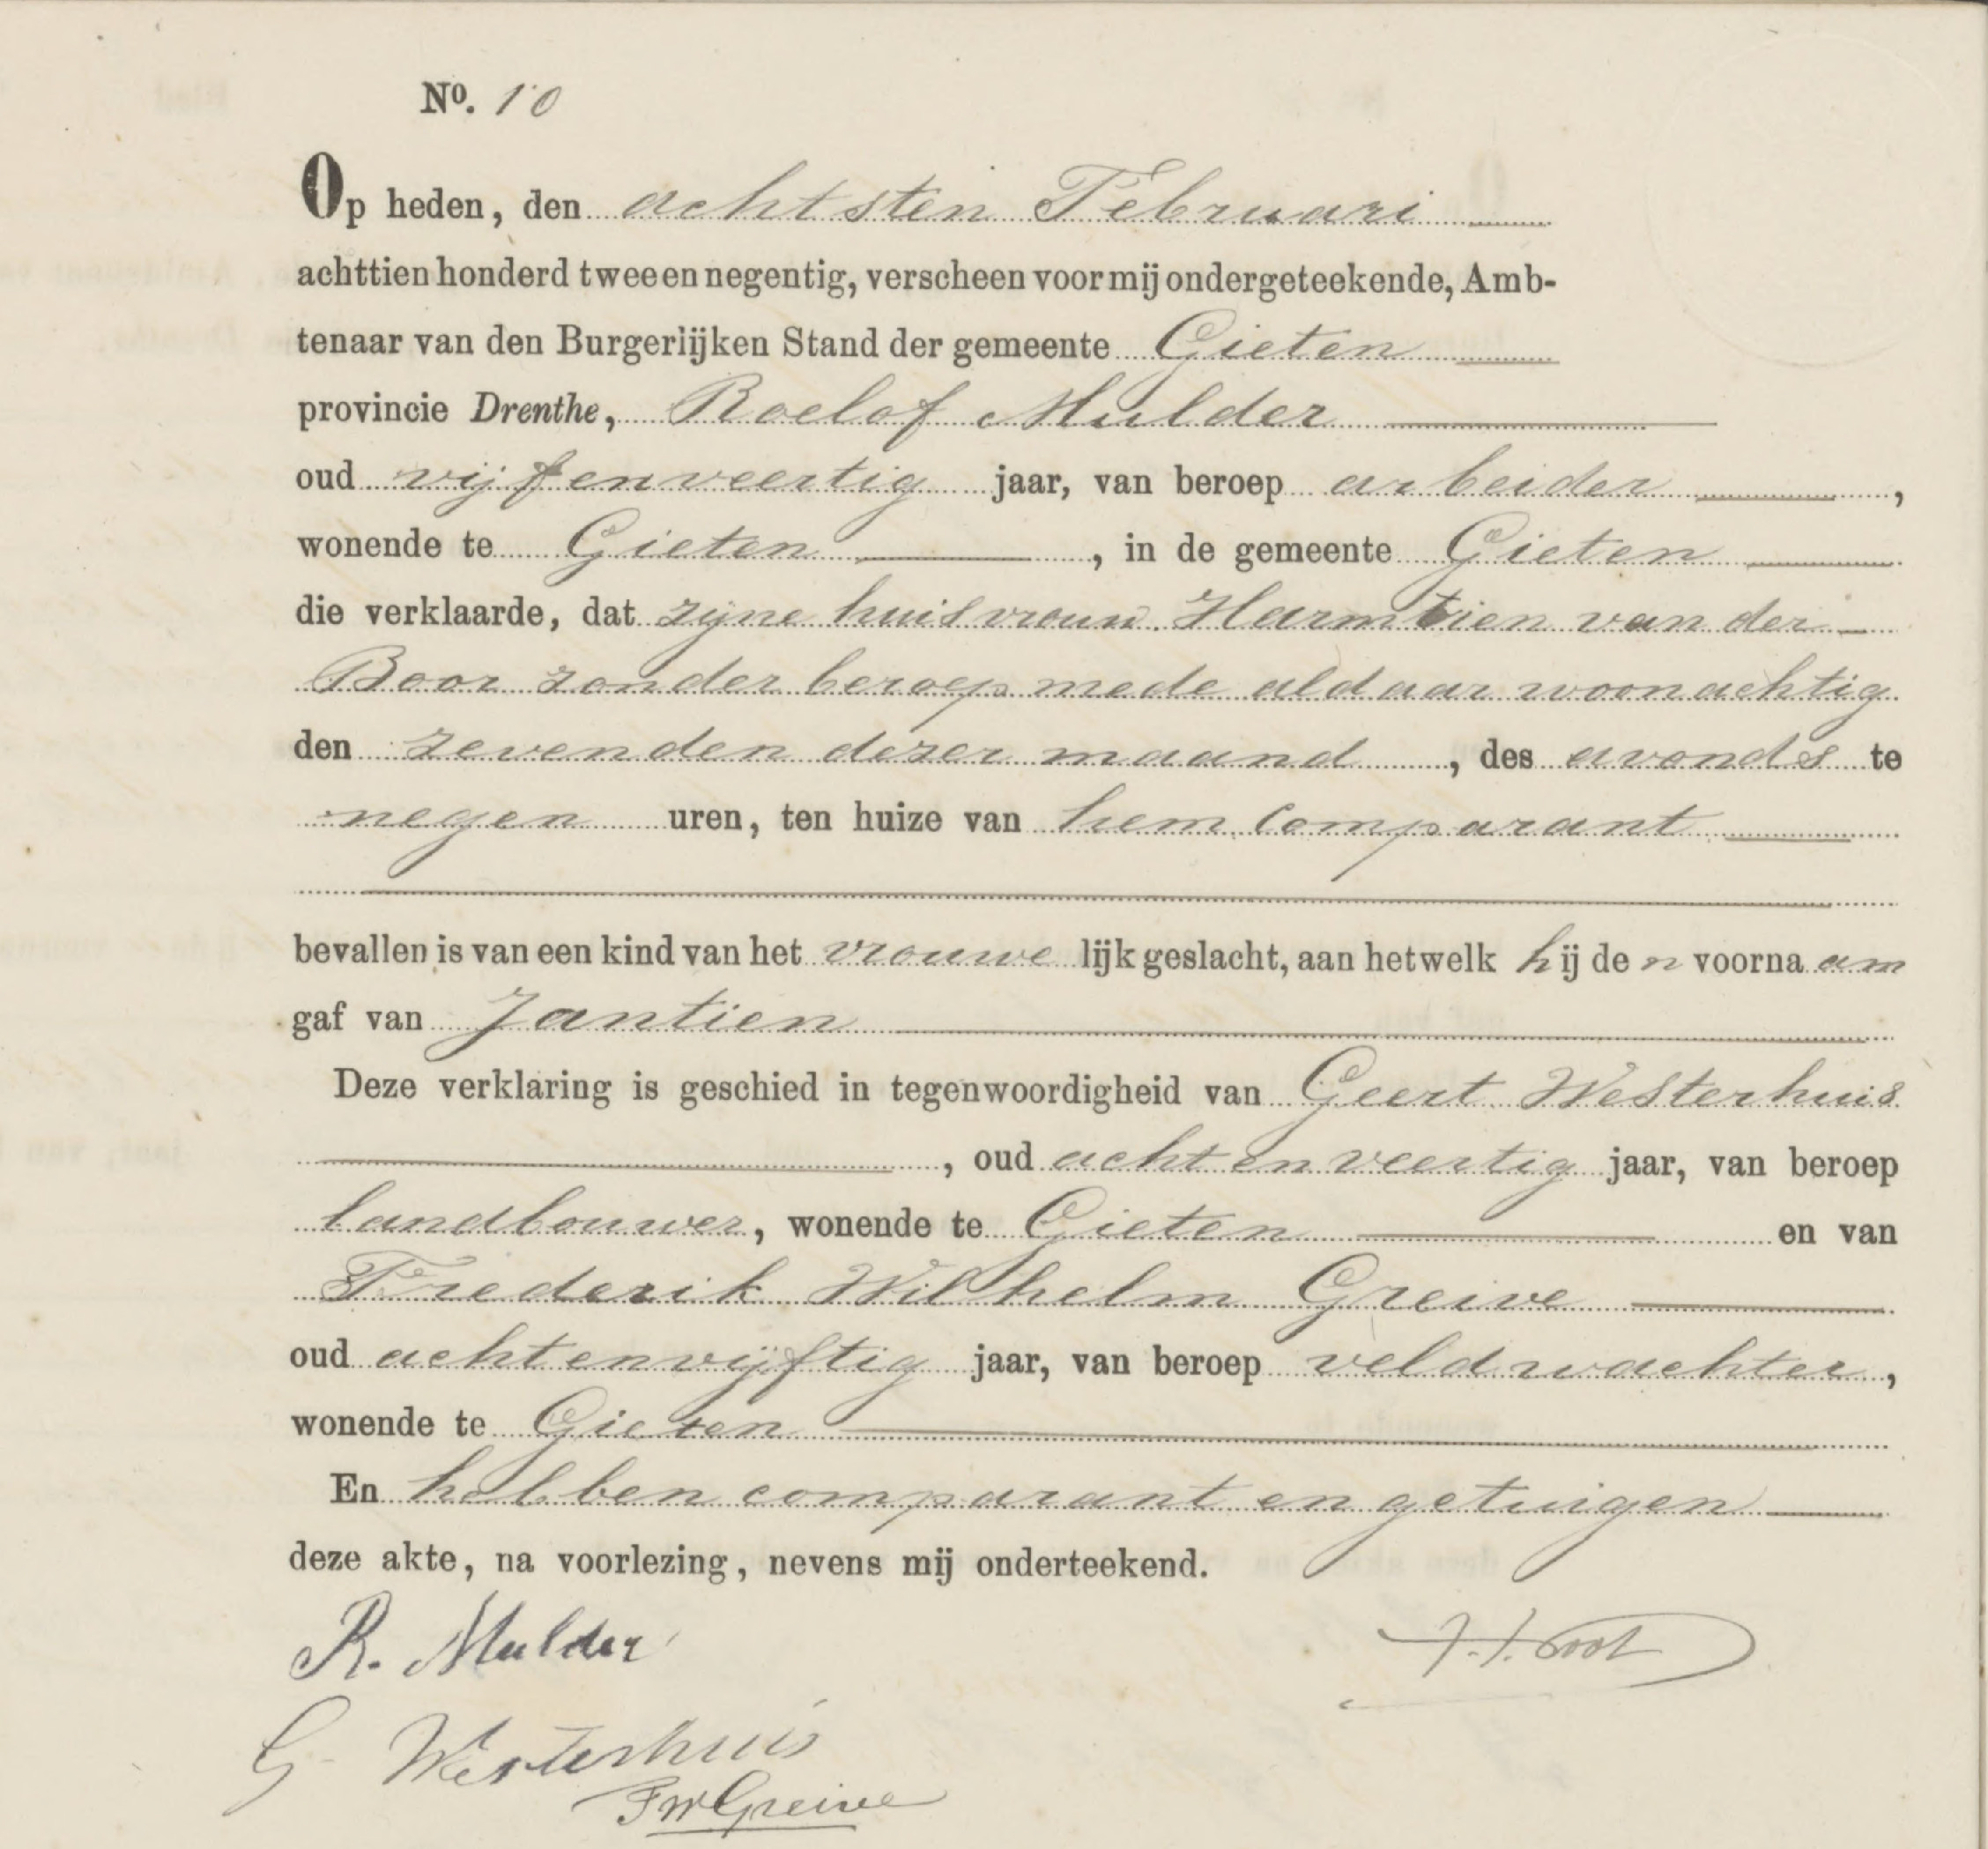 No. 10
Op heden, den achtsten Februari
achttien honderd twee en negentig, verscheen voor mij ondergeteekende, Amb-
tenaar van den Burgerlijken Stand der gemeente Gieten
provincie Drenthe, Roelof Mulder
oud vijfenveertig jaar, van beroep arbeider ,
wonende te Gieten , in de gemeente Gieten
die verklaarde, dat zijne huisvrouw Harmtien van der
Boor zonder beroep mede aldaar woonachtig
den zevenden dezer maand , des avonds te
negen uren, ten huize van hem comparant
bevallen is van een kind van het vrouwelijk geslacht, aan hetwelk hij den voornaam
gaf van Jantien
Deze verklaring is geschied in tegenwoordigheid van Geert Westerhuis
, oud achtenveertig jaar, van beroep
landbouwer, wonende te Gieten en van
Frederik Wilhelm Greive
oud achtenvijftig jaar, van beroep veldwachter,
wonende te Gieten
En hebben comparant en getuigen
deze akte, na voorlezing, nevens mij onderteekend.
R. Mulder
G Westerhuis
FWGreive